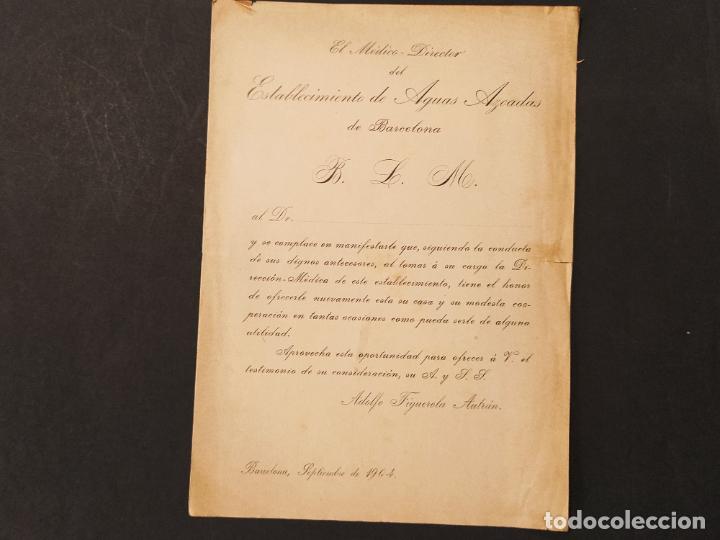 El Médico-Director
del
Establecimiento de Aguas Azoadas
de Barcelona
B. L. M.
al Dr.
y se complace en manifestarle que, siguiendo la conducta
de sus dignos antecesores, al tomar á su cargo la Di-
rección-Médica de este establecimiento, tiene el honor
de ofrecerle nuevamente esta su casa y su modesta coo-
peración en tantas ocasiones como pueda serle de alguna
utilidad.
Aprovecha esta oportunidad para ofrecer á V. el
testimonio de su consideración, su A. y S. S.
Adolfo Figuerola Autrán.
Barcelona, Septiembre de 1904.
todocoleccion